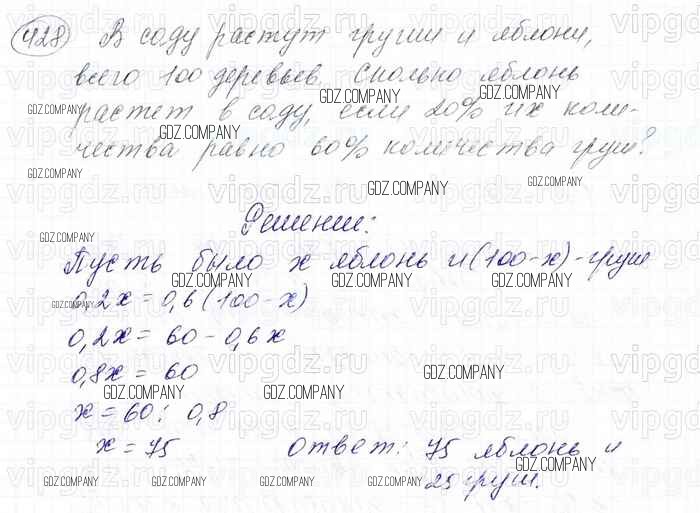 428 В саду растут груши и яблони,
всего 100 деревьев. Сколько яблонь
растет в саду, если 20% их коли-
чества равно 60% количества груш?
Решение:
Пусть было х яблонь и (100-х)-груш
0,2х = 0,6(100-х)
0,2х = 60 - 0,6х
0,8х = 60
х = 60 : 0,8
х = 75
Ответ: 75 яблонь и
25 груш.
vipgdz.ru
GDZ.COMPANY